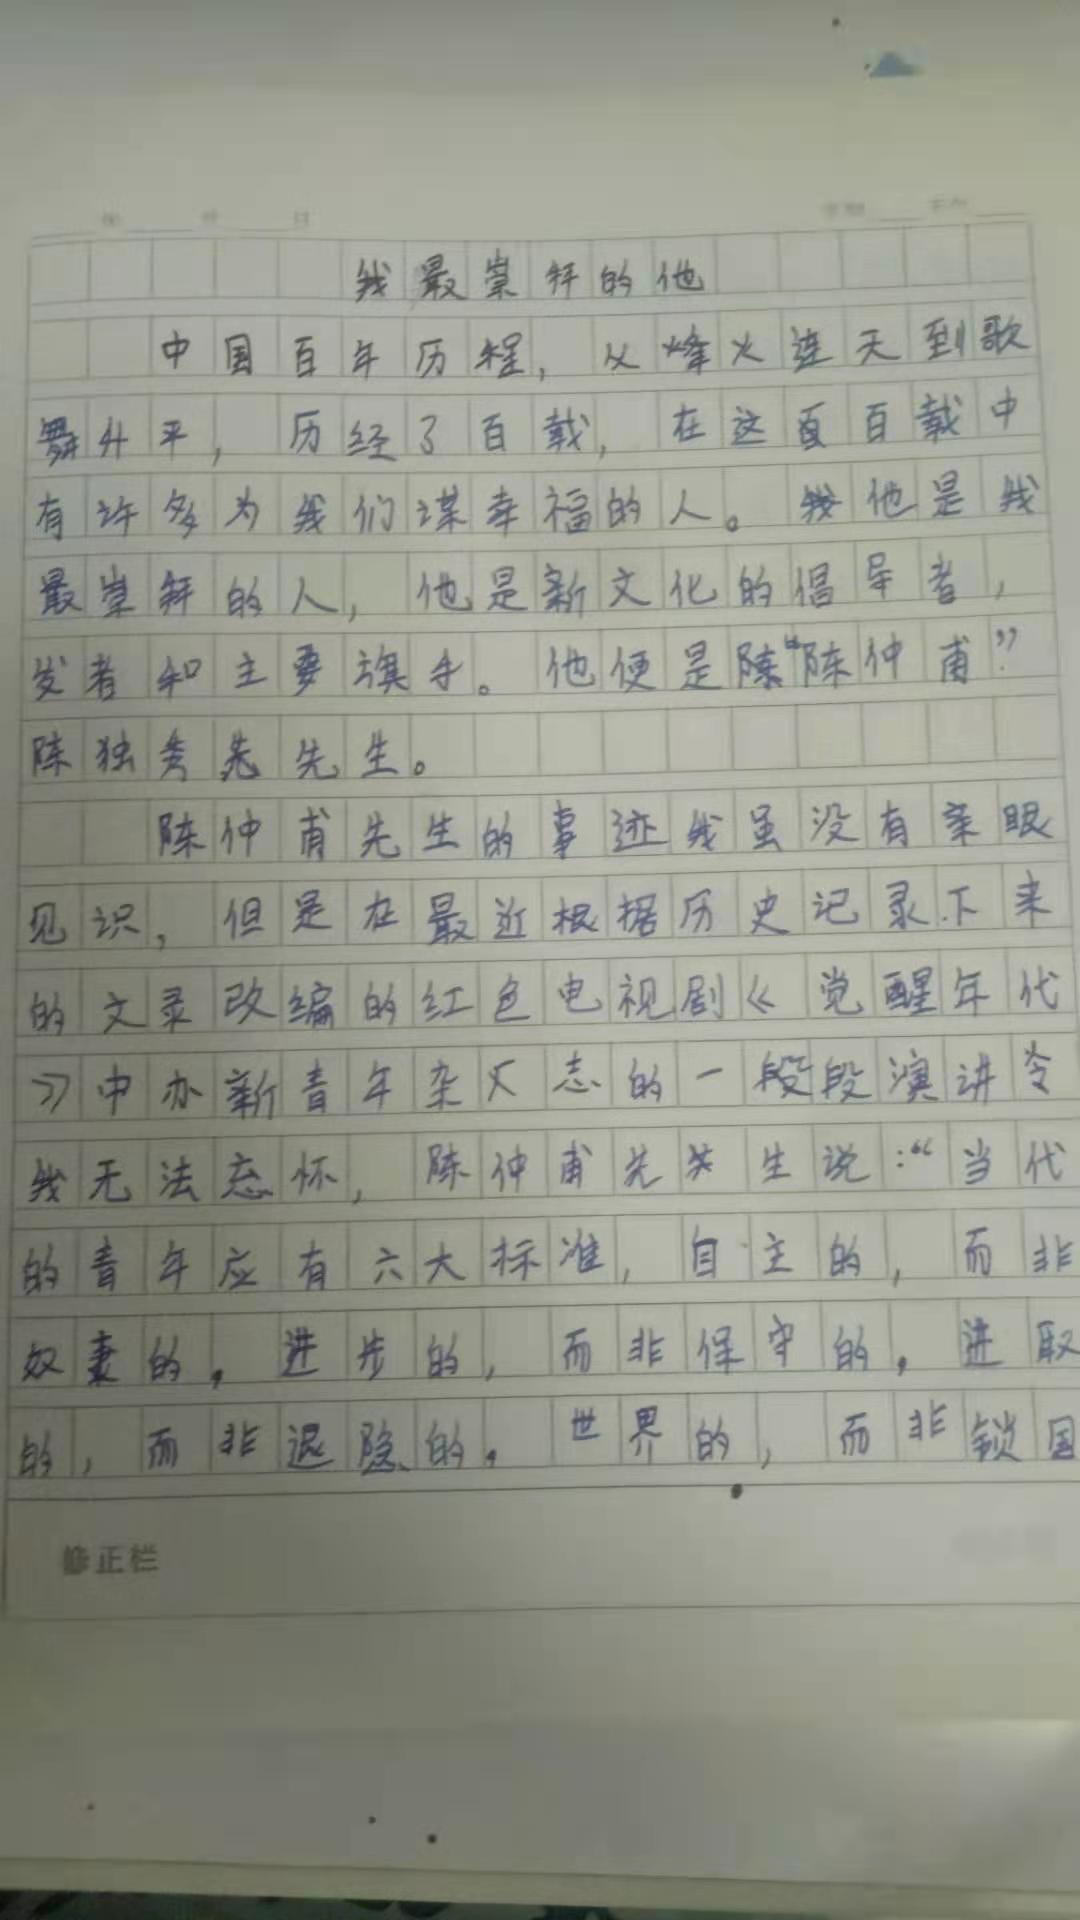 我最崇拜的他
中国百年历程，从烽火连天到歌
舞升平，历经了百载，在这百载中
有许多为我们谋幸福的人。他是我
最崇拜的人，他是新文化的倡导者，
发者和主要旗手。他便是“陈仲甫”
陈独秀先生。
陈仲甫先生的事迹我虽没有亲眼
见识，但是在最近根据历史记录下来
的文录改编的红色电视剧《觉醒年代
》中办新青年杂志的一段段演讲令
我无法忘怀，陈仲甫先生说：“当代
的青年应有六大标准，自主的，而非
奴妻的，进步的，而非保守的，进取
的，而非退隐的。世界的，而非锁国
修正栏